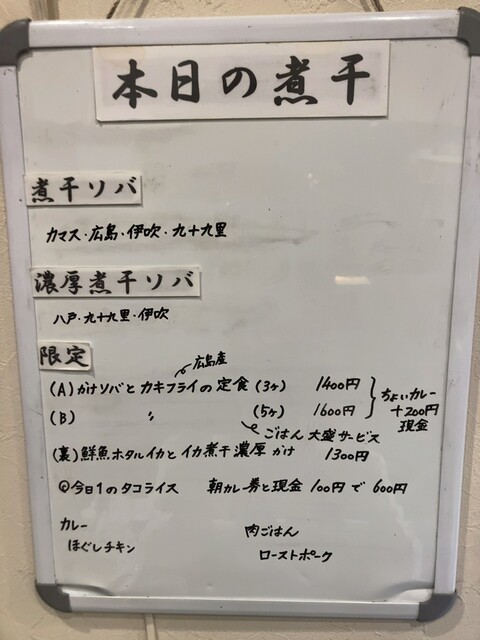 本日の煮干
煮干ソバ
カマス・広島・伊吹・九十九里
濃厚煮干ソバ
八戸・九十九里・伊吹
限定
広島産
(A) かけソバとカキフライの定食 (3ヶ) 1400円
(B) 〃 (5ヶ) 1600円
ちょいカレー
+200円
現金
ごはん大盛サービス
(裏) 鮮魚ホタルイカとイカ煮干濃厚かけ 1300円
今日1のタコライス 朝カレ券と現金100円で600円
カレー
ほぐしチキン
肉ごはん
ローストポーク